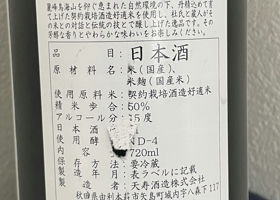 麗峰鳥海山を仰ぐ恵まれた自然環境の下、丹精込めて育
て上げた契約栽培酒造好適米を使用し、杜氏と蔵人がそ
の米との対話と伝統の技とで醸し上げた逸品です。その
芳醇な香りとやわらかな味わいをお楽しみください。
品目：日本酒
原材料名：米(国産)、
米麹(国産米)
使用原料米：契約栽培酒造好適米
精米歩合：50%
アルコール分：5度
日本酒
使用酵 ND-4
内容 720ml
保存方法：要冷蔵
製造年月：表ラベルに記載
製造者：天寿酒造株式会社
秋田県由利本荘市矢島町城内字八森下117